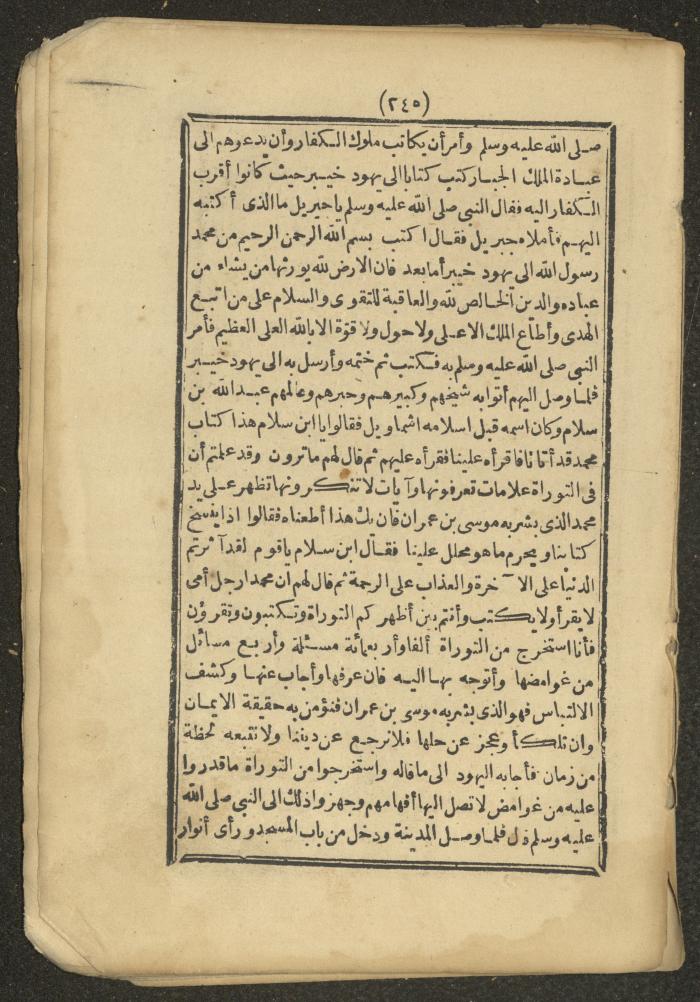 (٢٤٥)
صلى الله عليه وسلم وأمر أن يكاتب ملوك الكفار وأن يدعوهم الى
عبادة الملك الجبار كتب كتابا الى يهود خيبر حيث كانوا أقرب
الكفار اليه فقال النبى صلى الله عليه وسلم ياجبريل ما الذى أكتبه
اليهم فأملاه جبريل فقال اكتب بسم الله الرحمن الرحيم من محمد
رسول الله الى يهود خيبر أما بعد فان الارض لله يورثها من يشاء من
عباده والدين الخالص لله والعاقبة للتقوى والسلام على من اتبع
الهدى وأطاع الملك الاعلى ولا حول ولا قوّة الا بالله العلى العظيم فأمر
النبى صلى الله عليه وسلم به فكتب ثم ختمه وأرسل به الى يهود خيبر
فلما وصل اليهم أتوا به شيخهم وكبيرهم وحبرهم وعالمهم عبد الله بن
سلام وكان اسمه قبل اسلامه اشماويل فقالوا يا ابن سلام هذا كتاب
محمد قد أتانا فاقرأه علينا فقرأه عليهم ثم قال لهم ما ترون وقد علمتم أن
فى التوراة علامات تعرفونها وآيات لا تنكرونها تظهر على يد
محمد الذى بشر به موسى بن عمران فان يك هذا أطعناه فقالوا اذا ينسخ
كتابنا ويحرم ما هو محلل علينا فقال ابن سلام ياقوم لقد آثرتم
الدنيا على الآخرة والعذاب على الرحمة ثم قال لهم ان محمدا رجل أمى
لا يقرأ ولا يكتب وأنتم بين أظهركم التوراة وتكتبون وتقرؤن
فأنا استخرج من التوراة ألفا وأربعمائة مسئلة وأربع مسائل
من غوامضها وأتوجه بها اليه فان عرفها وأجاب عنها وكشف
الالتباس فهو الذى بشر به موسى بن عمران فنؤمن به حقيقة الايمان
وان تلكأ وعجز عن حلها فلا نرجع عن ديننا ولا نتبعه لحظة
من زمان فأجابه اليهود الى ما قاله واستخرجوا من التوراة ما قدروا
عليه من غوامض لا تصل اليها أفهامهم وجهزوا ذلك الى النبى صلى الله
عليه وسلم قال فلما وصل المدينة ودخل من باب المسجد ورأى أنوار